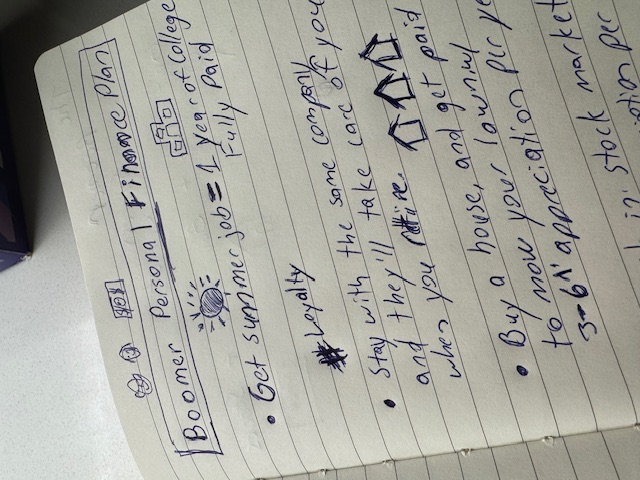 Boomer Personal Finance Plan
• Get summer job = 1 year of College
Fully Paid
# Loyalty
• Stay with the same company
and they'll take care of you
when you retire.
• Buy a house, and get paid
to mow your lawn
3-6% appreciation per
in stock market
per